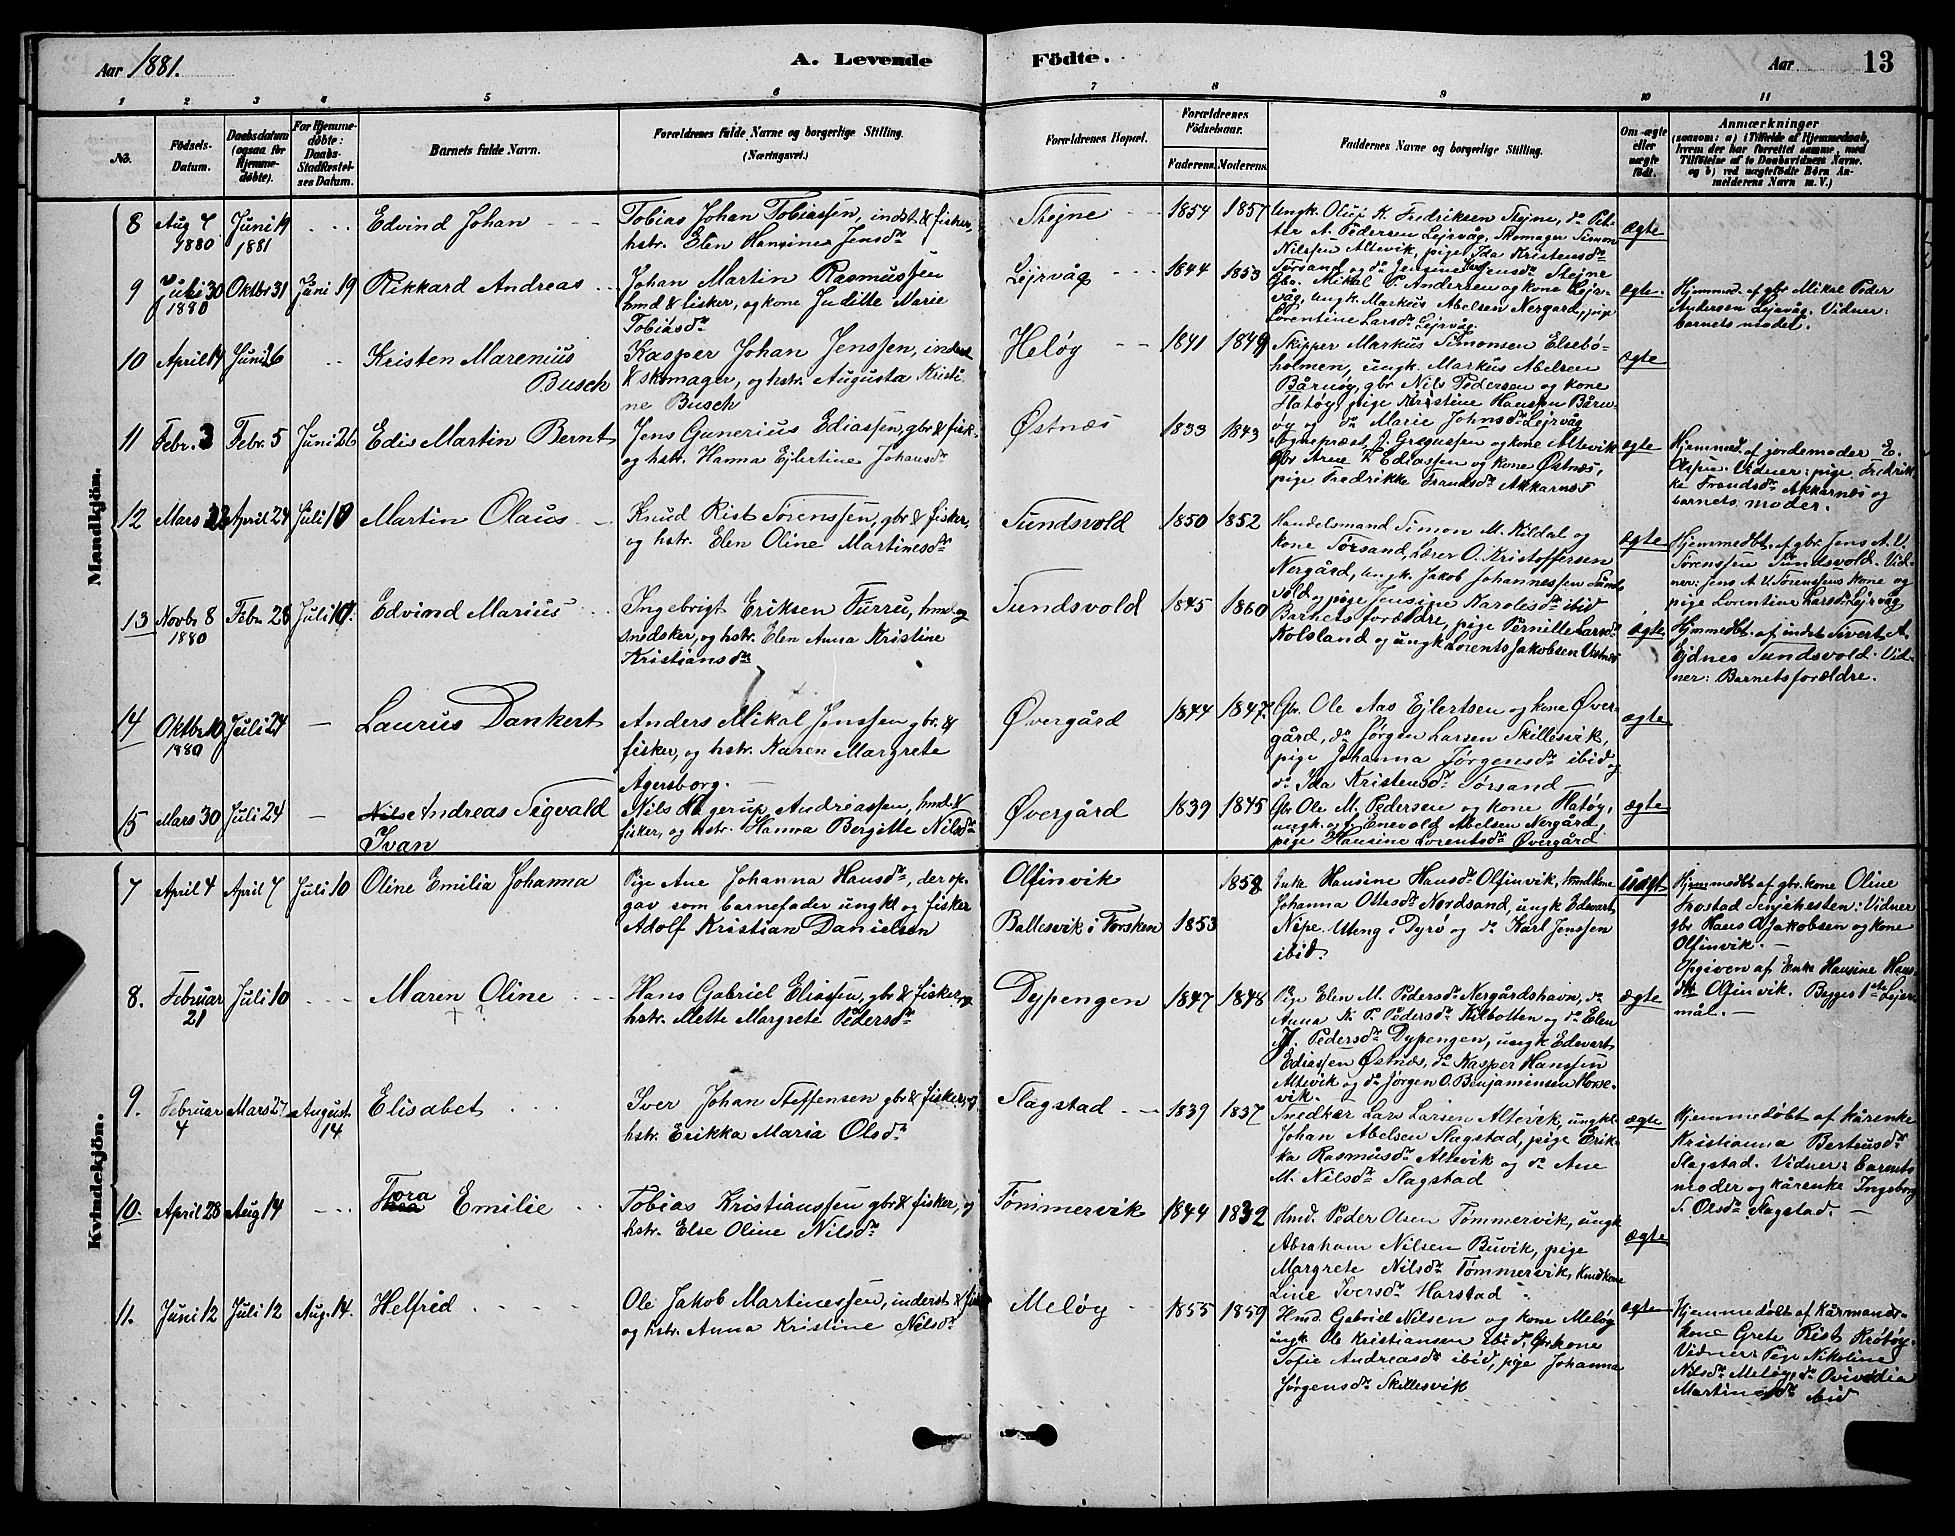 Aar 1881.
A. Levende Födte.
Aar
13
1 2 3 4 5 6 7 8 9 10 11
No.
Födsels-Datum.
Daabsdatum (ogsaa for Hjemme-döbte).
For Hjemme-döbte: Daabs-Stadfæstel-ses Datum.
Barnets fulde Navn.
Forældrenes fulde Navne og borgerlige Stilling. (Næringsvei.)
Forældrenes Bopæl.
Forældrenes Födselsaar.
Faderens. Moderens.
Faddernes Navne og borgerlige Stilling.
Om ægte eller uægte födt.
Anmærkninger
(saasom: a) i Tilfælde af Hjemmedaab, hvem der har forrettet samme, med Tilföielse af to Daabsvidners Navne, og b) ved uægtefödte Börn Anmelderens Navn m. V.)
Mandkjön.
8 Aug 4 1880 Juni 19 1881 Edvind Johan
Tobias Johan Tobiassen, indst & fisker,
hstr. Elen Hansine Jensdr
Stejne 1854 1857
Ungk. Oluf K. Fredriksen Stejne, do Pet-
ter A. Pedersen Lejrvåg, Skomager Simon
Nilssen Altevik, pige Ida Kristensdr
Tørsand og do Jensine Jensdr Stejne
ægte
9 Juli 30 1880 Oktbr 31 Juni 19 Rikkard Andreas
Johan Martin Rasmussen
hmd & fisker, og kone Juditte Marie
Tobiasdr
Lejrvåg 1844 1853
Gbr. Mikal P. Andersen og kone Lejr-
våg, ungk. Markus Abelsen Nergard, pige
Lorentine Larsdr Lejrvåg
ægte
Hjemmed. af gbr Mikal Peder
Andersen Lejrvåg. Vidner:
barnets moder.
10 April 19 Juni 26 Kristen Marenius
Busch
Kasper Johan Jenssen, inderst
& skomager, og hstr. Augusta Kristi-
ne Busch
Heløy 1841 1849
Skipper Markus Simonsen Elsebø-
holmen, ungk. Markus Abelsen
Bårnøy, gbr Nils Pedersen og kone
Hatøy, pige Kristine Hansen Bårn-
øy og do Marie Johnsdr Lejrvåg
ægte
11 Febr. 3 Febr. 5 Juni 26 Edis Martin Bernt
Jens Gunerius Ediassen, gbr & fisk.
og hstr. Hanna Ejlertine Johansdr
Østnæs 1833 1843
Sognepræst J. Gregussen og kone Altevik
Gbr Arne K. Ediassen og kone Østnæs,
pige Fredrikke Frandsdr Akkarnæs
ægte
Hjemmed. af jordemoder E.
Olsen. Vidner: pige Fredrik-
ke Frandsdr Akkarnæs og
barnets moder.
12 Mars 22 April 24 Juli 10 Martin Olaus
Knud Rist Sørenssen, gbr & fisker,
og hstr. Elen Oline Martinesdr
Sundsvold 1850 1852
Handelsmand Simon M. Kildal og
kone Tørsand, Lærer O. Kristoffersen
Nergård, ungk. Jakob Johannessen Sunds
vold og pige Jensine Karolesdr ibid
ægte
Hjemmedbt. af gbr. Jens A. V.
Sørenssen Sundsvold. Vid-
ner: Jens A. V. Sørenssens kone og
pige Lorentine Larsdr Lejrvåg
13 Novbr 8 1880 Febr. 28 Juli 10 Edvind Marius
Ingebrigt Eriksen Furru, hmd og
snedker, og hstr. Elen Anna Kristine
Kristiansdr
Sundsvold 1845 1860
Barnets forældre, pige Pernille Larsdr
Kolsland og ungk Lorents Jakobsen Ustnæs
ægte
Hjmmedbt. af indst Sivert A.
Ejdnes Sundsvold. Vid-
ner: Barnets forældre.
14 Oktbr 10 1880 Juli 24 Laurus Dankert
Anders Mikal Jenssen gbr. &
fisker, og hstr. Karen Margrete
Agersborg.
Øvergård 1844 1847
Gbr. Ole Aas Ejlertsen og kone Øver-
gård, do Jørgen Larsen Skillesvik,
pige Johanna Jørgensdr ibid og
do Ida Kristensdr Tørsand
ægte
15 Mars 30 Juli 24 Nils Andreas Sigvald
Ivan
Nils Hagerup Andreassen, hmd. &
fisker, og hstr. Hanna Bergitte Nilsdr
Øvergård 1839 1845
Gbr Ole M. Pedersen og kone Hatøy,
ungk. Enevold Abelsen Nergård,
pige Hansine Lorentsdr Øvergård
ægte
Kvindekjön.
7 April 4 April 7 Juli 10 Oline Emilia Johanna
Pige Ane Johanna Hansdr, der op-
gav som barnefader ungkl og fisker
Adolf Kristian Danielsen
Olfinvik 1858
Ballesvik i Torsken 1853
Enke Hansine Hansdr Olfinvik, hmdkone
Johanna Ottesdr Nordsand, ungk Edevart
Nipe. Uteng i Dyrø og do Karl Jenssen
ibid
uægt
Hjemmedbt af gbr. kone Oline
Frostad Senjehesten: Vidner
gbr Hans A Jakobsen og kone
Olfinvik.
Opgiven af Enke Hansine Hans-
dtr Olfinvik. Begges 1ste Lejer-
mål.
8. Februar 21 Juli 10 Maren Oline
+ ?
Hans Gabriel Eliassen, gbr & fisker, og
hstr. Mette Margrete Pedersdr
Dypengen 1847 1848
Pige Elen M. Pedersdr Nergårdshavn, do
Anna K. P. Pedersdr Kilbotten og do Elen
J. Pedersdr Dypengen, ungk Edevart
Ediassen Østnæs, do Kasper Hanssen
Altevik og do Jørgen O. Benjaminsen Horse-
vik.
ægte
9. Februar 4 Mars 27 August 14 Elisabet
Iver Johan Steffensen gbr & fisker, og
hstr. Erikka Maria Olsdr
Slagstad 1839 1837
Snedker Lars Larsen Altevik, ungkl
Johan Abelsen Slagstad, pige Erik-
ka Rasmusdr Altevik og do Ane
M. Nilsdr Slagstad
ægte
Hjemmedøbt af kårenke
Kristianna Berteusdr
Slagstad. Vidner: barnets
moder og kårenke Ingeborg
S. Olsdr Slagstad.
10. April 28 Aug 14 Tora Emilie
Tobias Kristianssen gbr & fisker, og
hstr. Else Oline Nilsdr
Tømmervik 1844 1832
Hmd. Peder Olsen Tømmervik, ungk
Abraham Nilsen Buvik, pige
Margrete Nilsdr Tømmervik, hmdkone
Line Iversdr Harstad
ægte
11. Juni 12 Juli 12 Aug. 14. Helfrid
Ole Jakob Martinessen, inderst & fisk
og hstr. Anna Kristine Nilsdr
Meløy 1855 1859
Hmd. Gabriel Nilsen og kone Meløy
ungk. Ole Kristiansen ibid, Gbr kone
Sofie Andreasdr ibid, pige Johanna
Jørgensdr Skillesvik
ægte
Hjemmedøbt af kårmands-
kone Grete Rist Krøtøy.
Vidner: Pige Nikoline
Nilsdr Meløy, do Ovividia
Martinsdr ibid